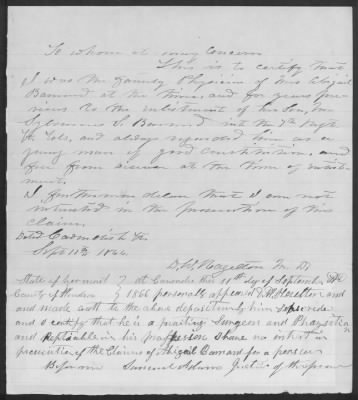 To whom it may Concern
This is to certify that
I was the family Physician of Mrs Abigail
Barnard at the time, and for years pre-
vious to the enlistment of her son,
Sylvanus S. Barnard in the 7th Regt
Vt. Vols, and always regarded him as a
young man of good constitution, and
free from disease at the time of enlist-
ment.
I further declare that I am not
interested in the prosecution of this
claim.
Dated Cavendish Vt.
Sept 11th 1866.
D. W. Hazelton M. D,
State of Vermont } At Cavendish this 11th day of September
County of Windsor } 1866 personally appeared D. W. Hazelton and
and made oath to the above deposition by him
and I certify that he is a practising Surgeon and Physician
and Reptable in his profession & have no intrest in
prosecution of the Claim of Abigail Barnard for a pension
Before me Samuel Adams Justice of the peace